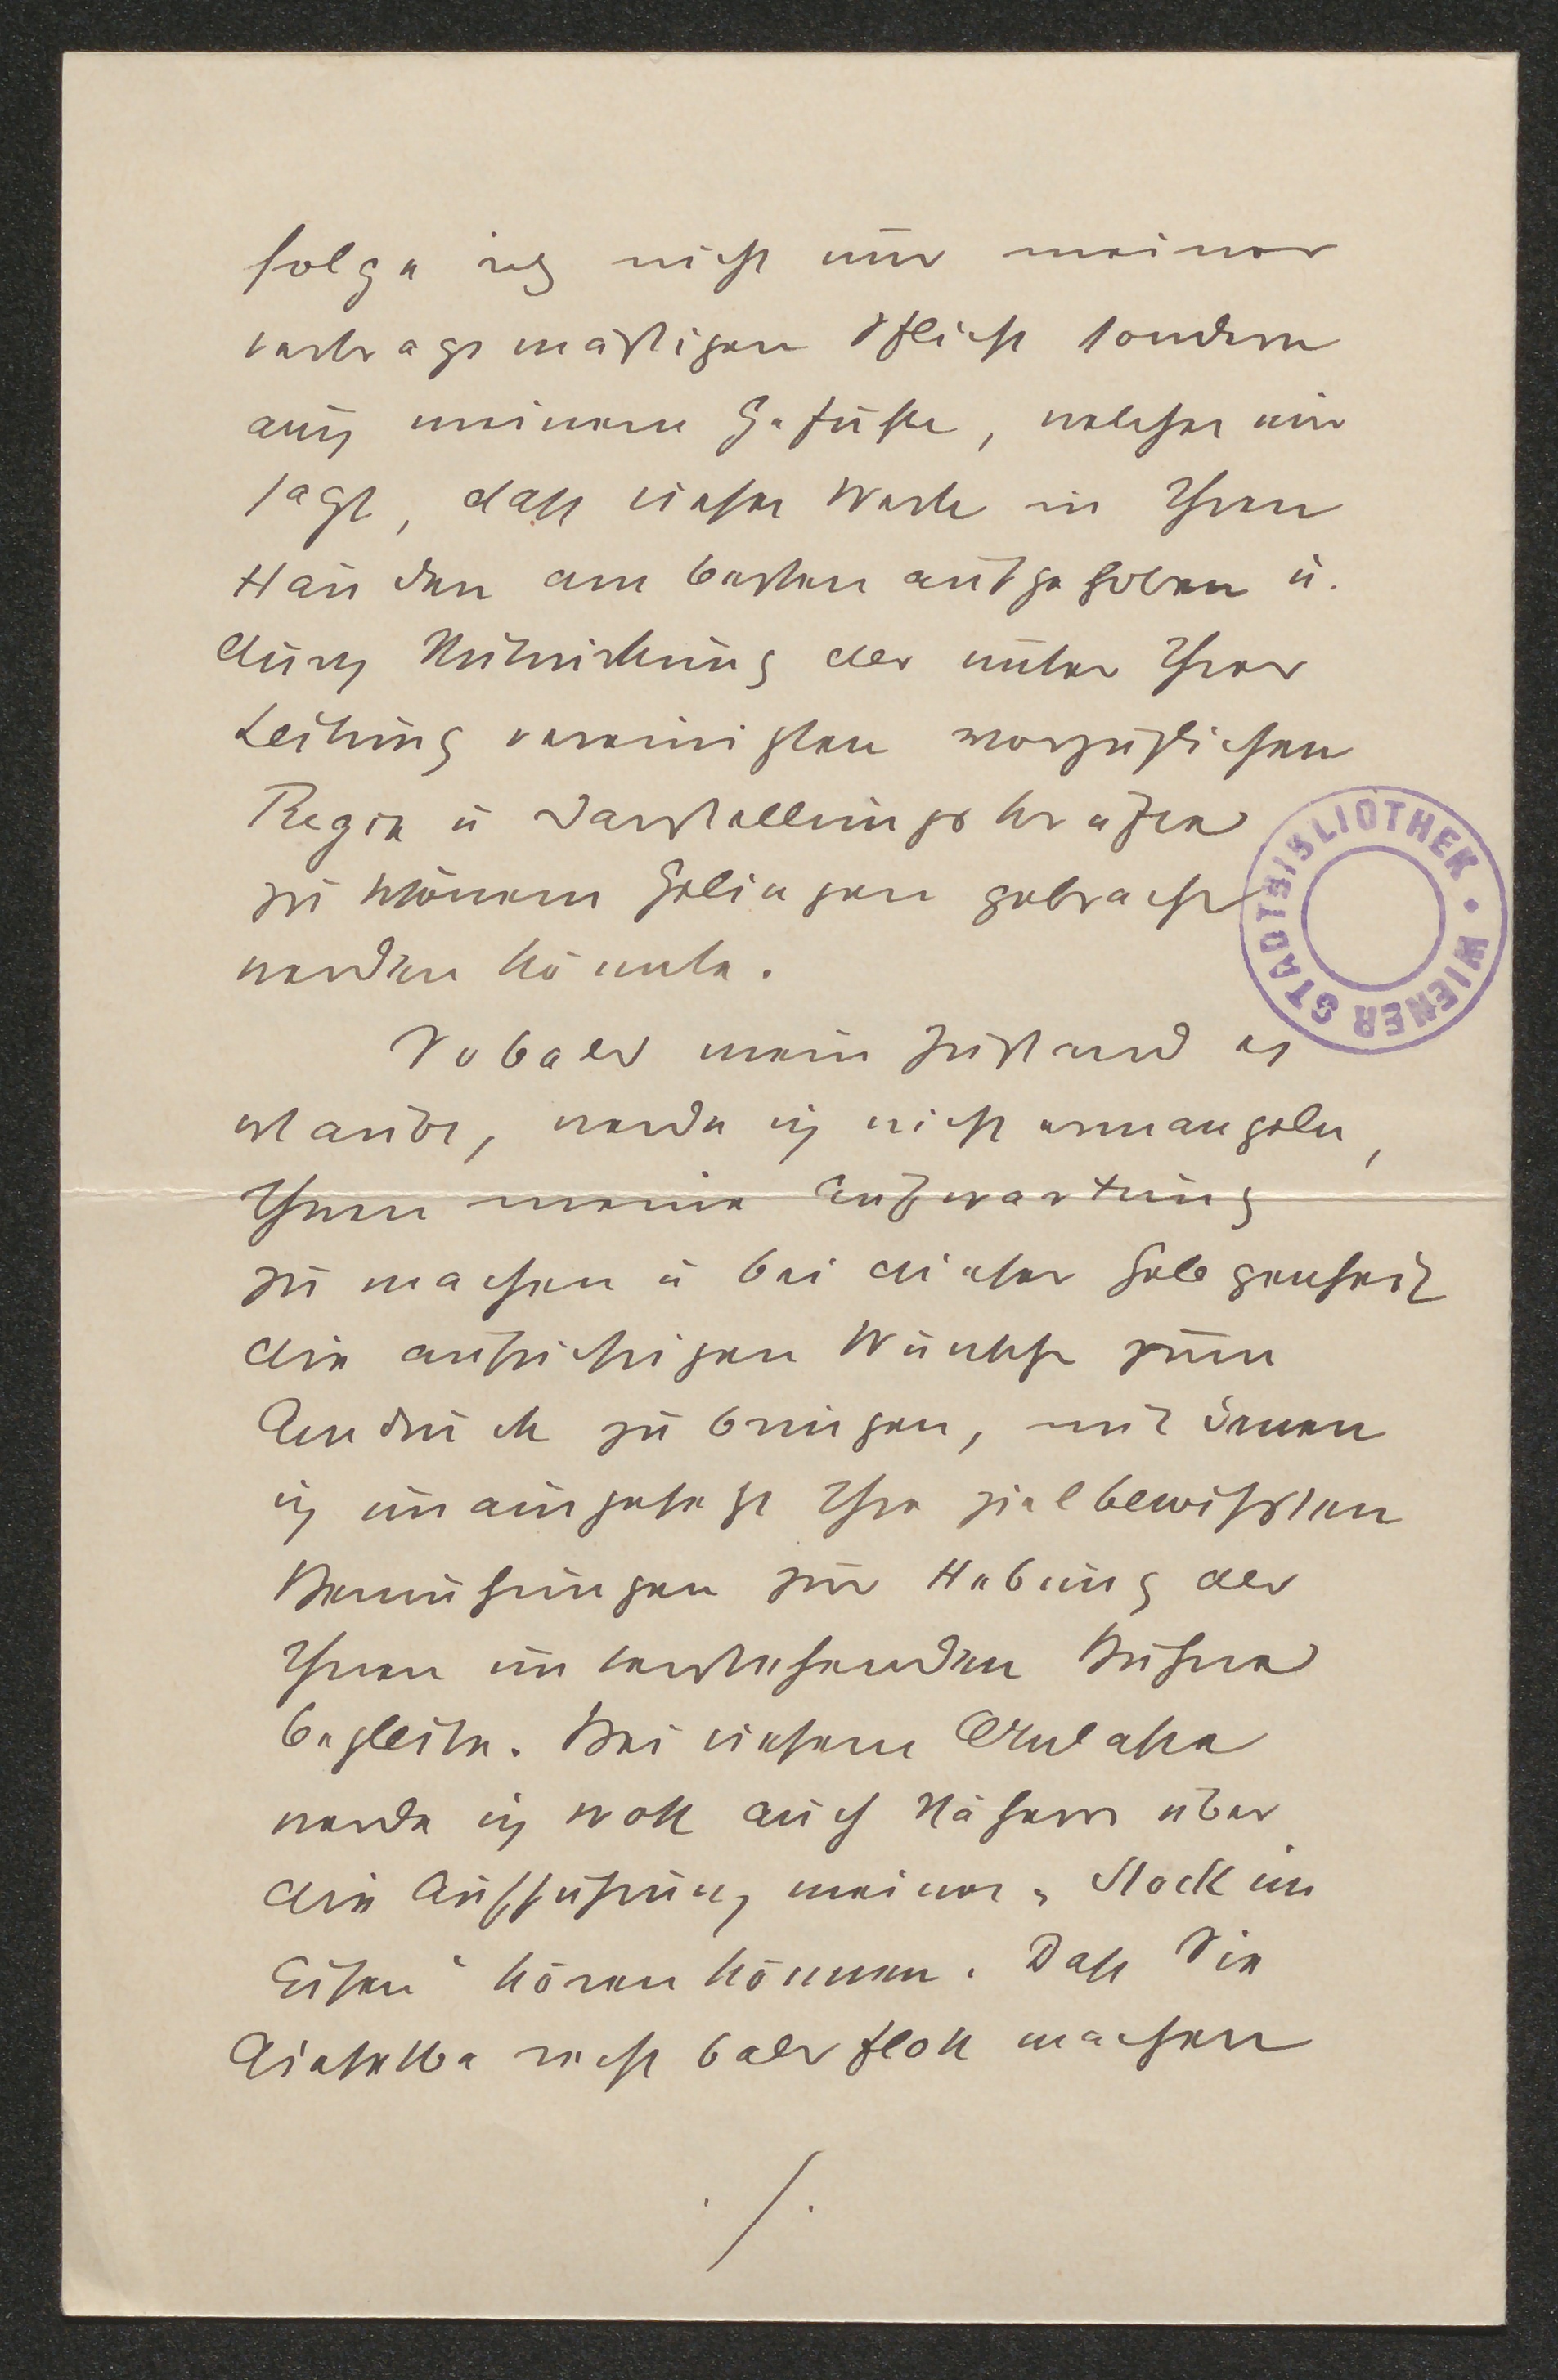 folge ich nicht nur meiner
vertragsmäßigen Pflicht sondern
auch meinem Gefühle, welches mir
sagt, dass dieses Werk in Ihren
Händen am besten aufgehoben u.
durch Mitwirkung der unter Ihrer
Leitung vereinigten vorzüglichen
Regie u Darstellungskräfte
zu schönem Gelingen gebracht
werden könnte.
Sobald mein Zustand es
erlaubt, werde ich nicht ermangeln,
Ihnen meine Aufwartung
zu machen u bei dieser Gelegenheit
die aufrichtigen Wünsche zum
Ausdruck zu bringen, mit denen
ich unausgesetzt Ihre zielbewußten
Bemühungen zur Hebung der
Ihnen unterstehenden Bühne
begleite. Bei diesem Anlasse
werde ich wohl auch Näheres über
die Aufführung meines „Stock im
Eisen" hören können. Daß Sie
dieselbe recht bald flott machen
./.
WIENER STADTBIBLIOTHEK